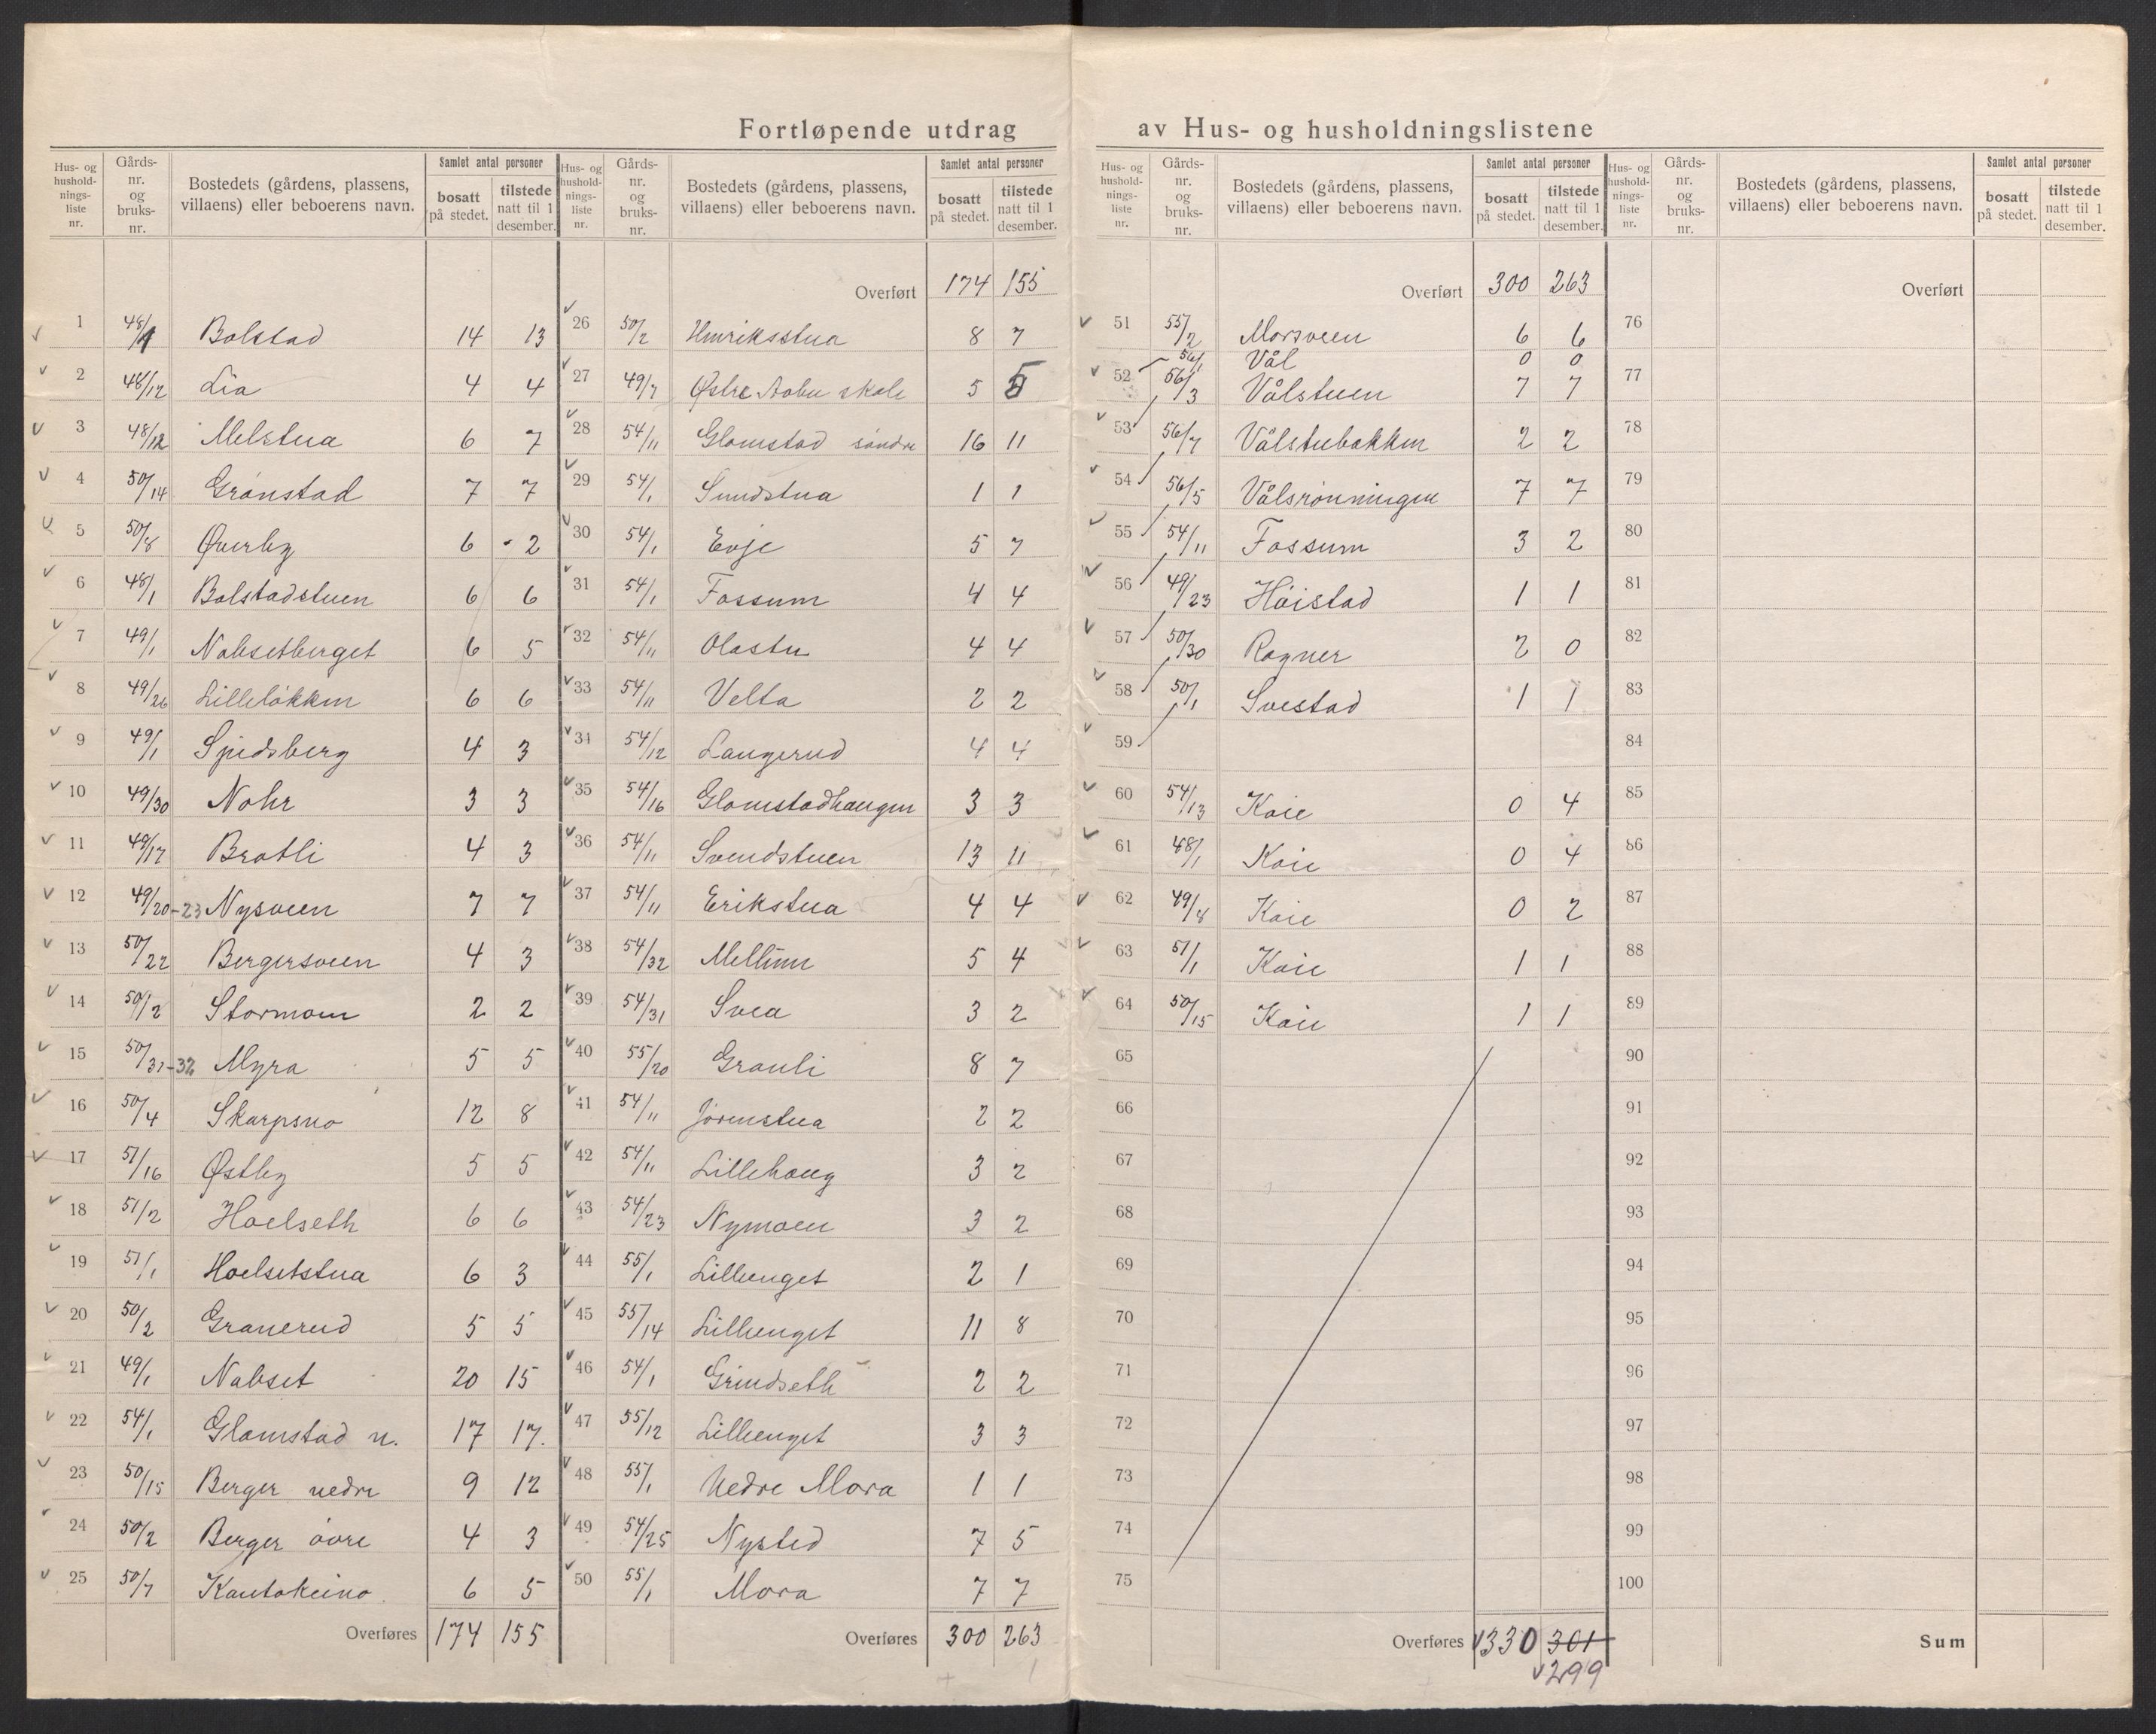 Fortløpende utdrag av Hus- og husholdningslistene
Hus- og husholdnings-liste nr. | Gårds-nr. og bruks-nr. | Bostedets (gårdens, plassens, villaens) eller beboerens navn. | Samlet antal personer | bosatt på stedet. | tilstede natt til 1 desember.
1 48/1 Bolstad 14 13
2 48/12 Lia 4 4
3 48/12 Melstua 6 7
4 50/14 Grønstad 7 7
5 50/8 Øverby 6 - 2
6 48/1 Bolstadstuen 6 6
7 49/1 Nabsetberget 6 5
8 49/26 Lilleløkken 6 6
9 49/1 Spidsberg 4 3
10 49/30 Nohr 3 3
11 49/17 Bratli 4 3
12 49/20-23 Nysveen 7 7
13 50/22 Bergersveen 4 3
14 50/2 Stormoen 2 2
15 50/31-32 Myra 5 5
16 50/4 Skarpsno 12 8
17 51/16 Østby 5 5
18 51/2 Hoelseth 6 6
19 51/1 Hoelsetstua 6 3
20 50/2 Granerud 5 5
21 49/1 Nabset 20 15
22 54/1 Glomstad n. 17 17.
23 50/15 Berger nedre 9 12
24 50/2 Berger øvre 4 3
25 50/7 Kautokeino 6 5
Overføres 174 155
Hus- og husholdnings-liste nr. | Gårds-nr. og bruks-nr. | Bostedets (gårdens, plassens, villaens) eller beboerens navn. | Samlet antal personer | bosatt på stedet. | tilstede natt til 1 desember.
Overført 174 155
26 50/2 Henriksstua 8 7
27 49/7 Østre Aabu skole 5 5
28 54/11 Glomstad søndre 16 11
29 54/1 Sundstua 1 1
30 54/1 Evje 5 7
31 54/1 Fossum 4 4
32 54/11 Olastu 4 4
33 54/11 Velta 2 2
34 54/12 Langerud 4 4
35 54/16 Glomstadhaugen 3 3
36 54/11 Svendstuen 13 11
37 54/11 Erikstua 4 4
38 54/32 Mellum 5 4
39 54/31 Svea 3 2
40 55/20 Granli 8 7
41 54/11 Jørnstua 2 2
42 54/11 Lillehaug 3 2
43 54/23 Nymoen 3 2
44 55/1 Lilleenget 2 1
45 55/14 Lilleenget 11 8
46 54/1 Grindseth 2 2
47 55/12 Lilleenget 3 3
48 55/1 Nedre Mora 1 1
49 54/25 Nysted 7 5
50 55/1 Mora 7 7
Overføres 300 263
Hus- og husholdnings-liste nr. | Gårds-nr. og bruks-nr. | Bostedets (gårdens, plassens, villaens) eller beboerens navn. | Samlet antal personer | bosatt på stedet. | tilstede natt til 1 desember.
Overført 300 263
51 55/2 Morsveen 6 6
56/1 Vål 0 0
52 56/3 Vålstuen 7 7
53 56/7 Vålstubakken 2 2
54 56/5 Vålsrønningen 7 7
55 54/11 Fossum 3 2
56 49/23 Høistad 1 1
57 50/30 Ragner 2 0
58 50/1 Svestad 1 1
59
60 54/13 Koie 0 4
61 48/1 Koie 0 4
62 49/8 Koie 0 2
63 51/1 Koie 1 1
64 50/15 Koie 1 1
65
66
67
68
69
70
71
72
73
74
75
Overføres 330 301
299
Hus- og husholdnings-liste nr. | Gårds-nr. og bruks-nr. | Bostedets (gårdens, plassens, villaens) eller beboerens navn. | Samlet antal personer | bosatt på stedet. | tilstede natt til 1 desember.
Overført
76
77
78
79
80
81
82
83
84
85
86
87
88
89
90
91
92
93
94
95
96
97
98
99
100
Sum